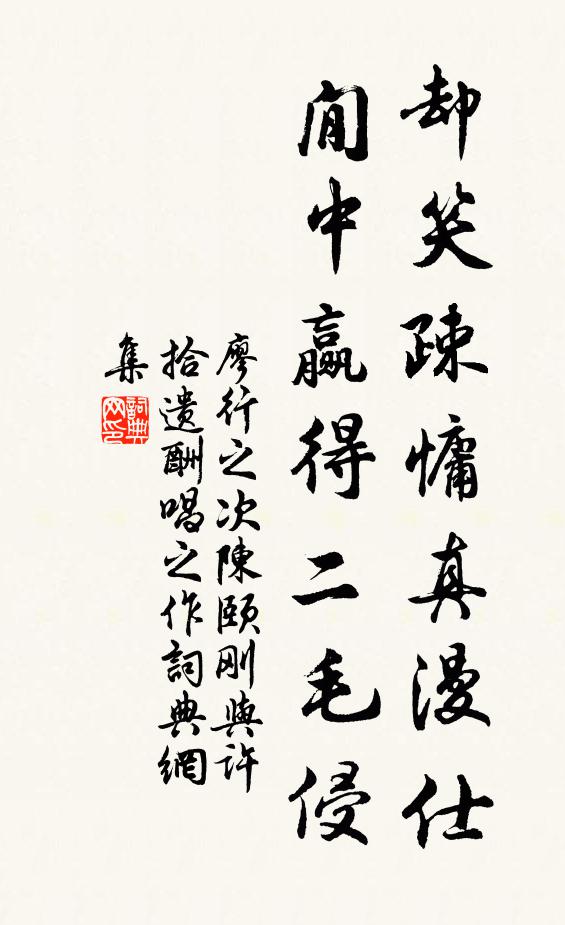 却笑疎慵真漫仕
閒中贏得二毛侵
廖行之次陳頤剛與許
拾遺酬唱之作詞典網
集
詞典
网印